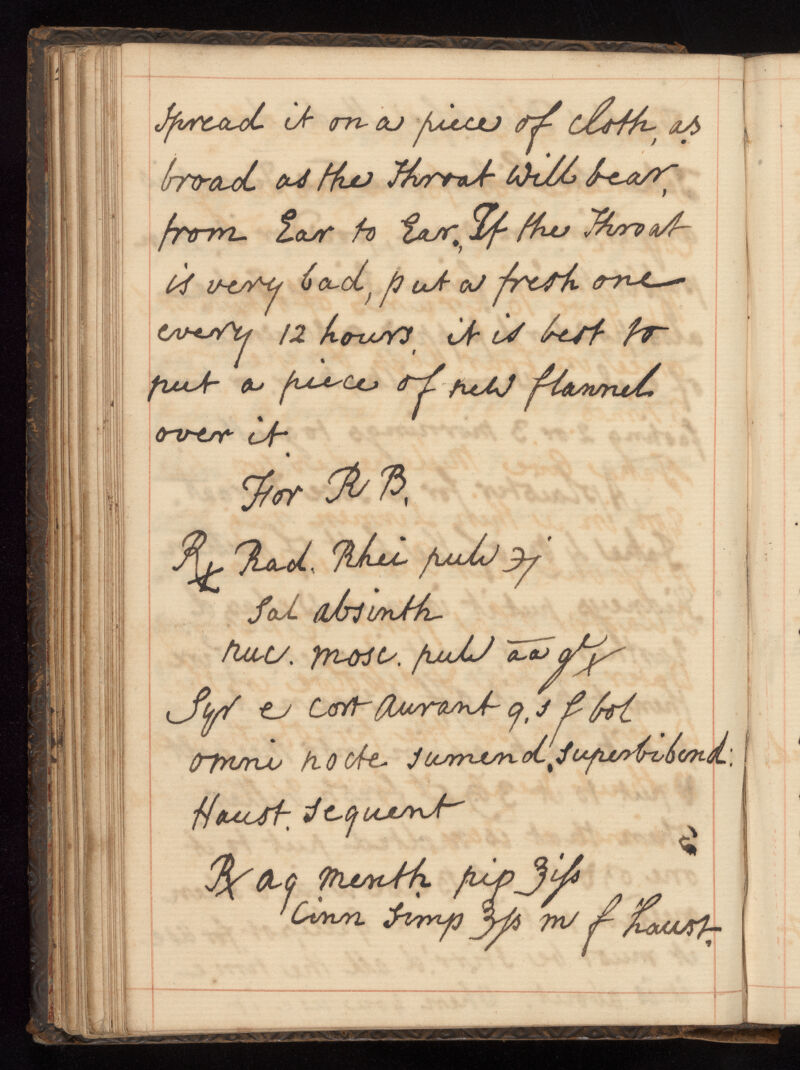 spread it on a piece of cloth, as
broad as the Throat will bear,
from Ear to Ear. If the Throat
is very bad, put a fresh one
every 12 hours, it is best to
put a piece of new flannel
over it.
For R B.
℞ Rad. Rhei pulv ℈j
Sal absinth
nuc. mosc. pulv āā gr x
Syr e Cort Aurant q. s f bol
omni nocte sumend, superbibend:
Haust. sequent
℞ aq menth pip ℥iſs
Cinn simp ℥ſs m f haust.